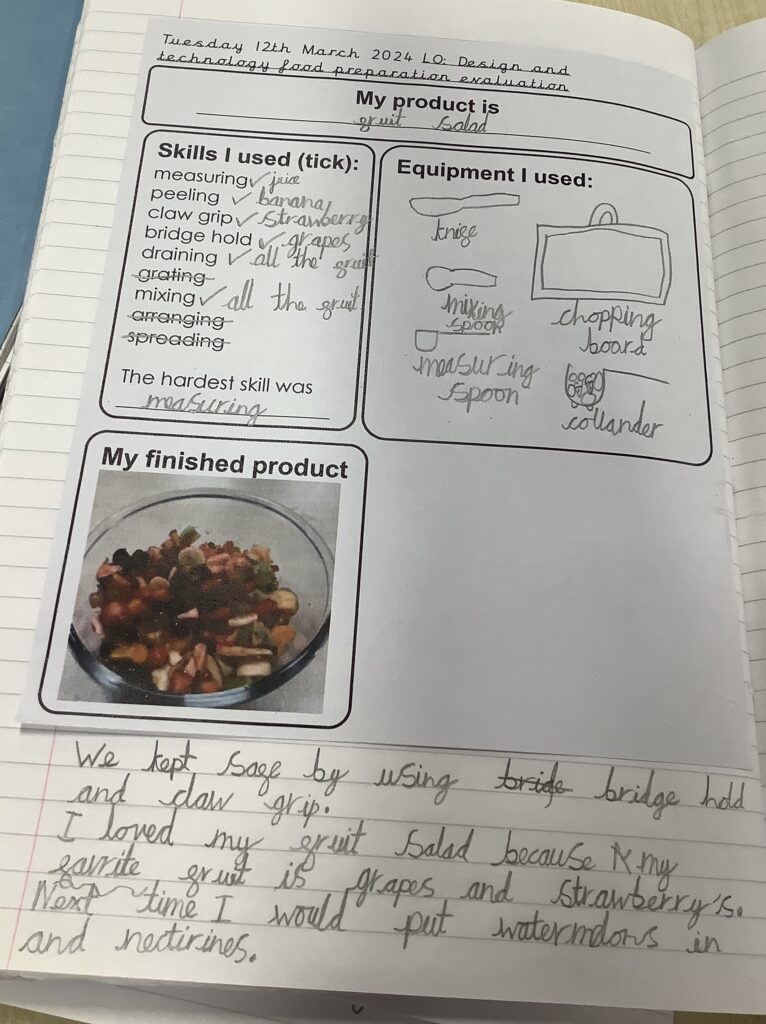 Tuesday 12th March 2024 LO: Design and
technology food preparation evaluation
My product is
fruit salad
Skills I used (tick):
measuring ✓ juice
peeling ✓ banana
claw grip ✓ strawberry
bridge hold ✓ grapes
draining ✓ all the fruit
grating
mixing ✓ all the fruit
arranging
spreading
The hardest skill was
measuring
Equipment I used:
knife
mixing
spoon
chopping
board
measuring
spoon
collander
My finished product
We kept safe by using bride bridge hold
and claw grip.
I loved my fruit salad because my
favrite fruit is grapes and strawberry's.
Next time I would put watermelons in
and nectirines.